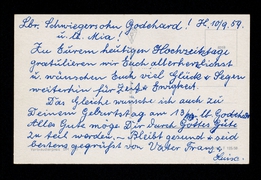 Lbr. Schwiegersohn Godehard! H. 10/9.59.
u. lb. Mia!
Zu Eurem heutigen Hochzeitstage
gratulieren wir Euch allerherzlichst
u. wünschen Euch viel Glück u. Segen
weiterhin für Zeit u. Ewigkeit.
Das Gleiche wünsche ich auch zu
Deinem Geburtstag am 13/9. lb. Godehard
Alles Gute möge Dir durch Gottes Güte
zu teil werden. – Bleibt gesund u. seid
bestens gegrüßt von Vater Franz u.